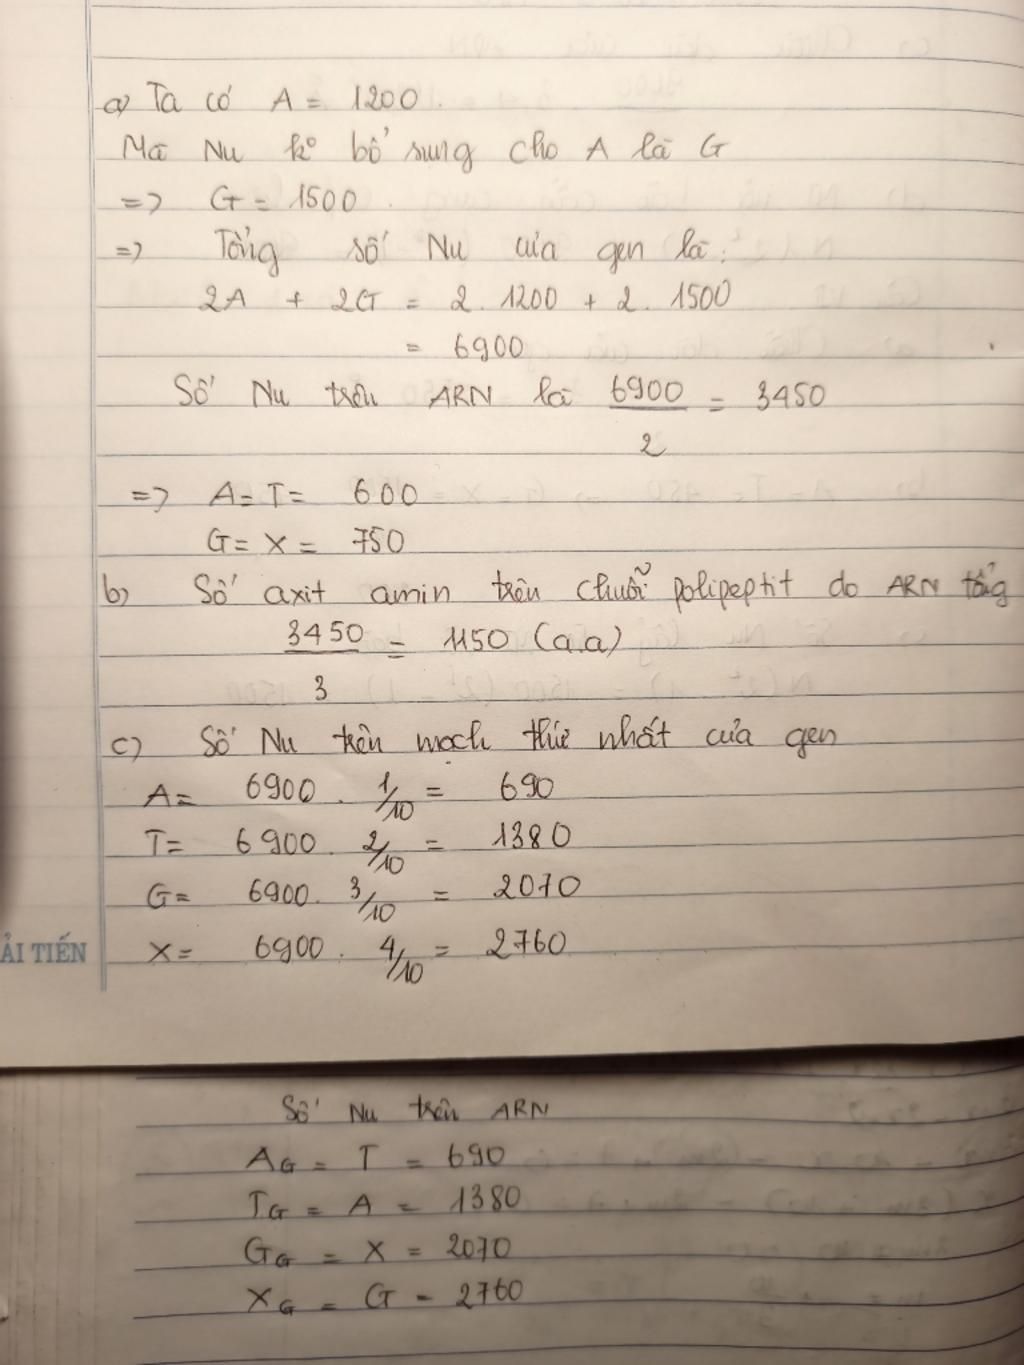 a) Ta có A = 1200.
Mà Nu ko bổ sung cho A là G
=> G = 1500.
=> Tổng số Nu của gen là:
2A + 2G = 2. 1200 + 2. 1500
= 6900
Số Nu trên ARN là 6900/2 = 3450
=> A = T = 600
G = X = 750
b) Số axit amin trên chuỗi polipeptit do ARN tổng
3450/3 = 1150 (a.a)
c) Số Nu trên mạch thứ nhất của gen
A = 6900 . 1/10 = 690
T = 6900 . 2/10 = 1380
G = 6900. 3/10 = 2070
X = 6900 . 4/10 = 2760
ẢI TIẾN
Số Nu trên ARN
AG = T = 690
TG = A = 1380
GG = X = 2070
XG = G = 2760